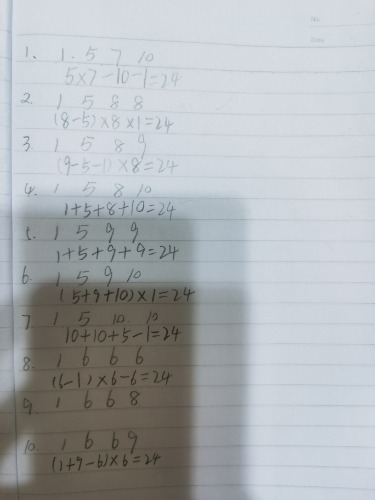 No.
Date
1. 1. 5 7 10
5×7-10-1=24
2. 1 5 8 8
(8-5)×8×1=24
3. 1 5 8 9
(9-5-1)×8=24
4. 1 5 8 10
1+5+8+10=24
5. 1 5 9 9
1+5+9+9=24
6. 1 5 9 10
(5+9+10)×1=24
7. 1 5 10 10
10+10+5-1=24
8. 1 6 6 6
(6-1)×6-6=24
9. 1 6 6 8
10. 1 6 6 9
(1+9-6)×6=24